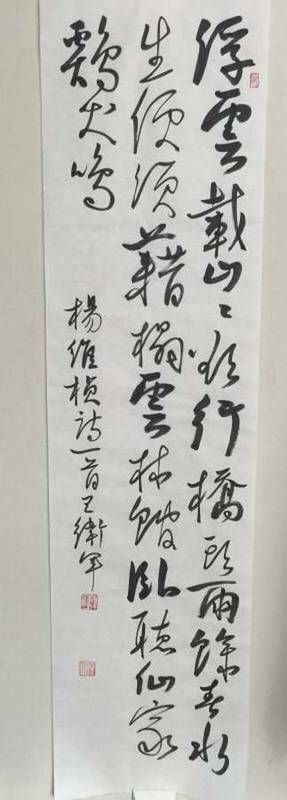 浮雲載山〻欲行橋頭雨餘春水
生便須藉榻雲林館臥聽仙家
鷄犬鳴
楊維楨詩一首王衛軍